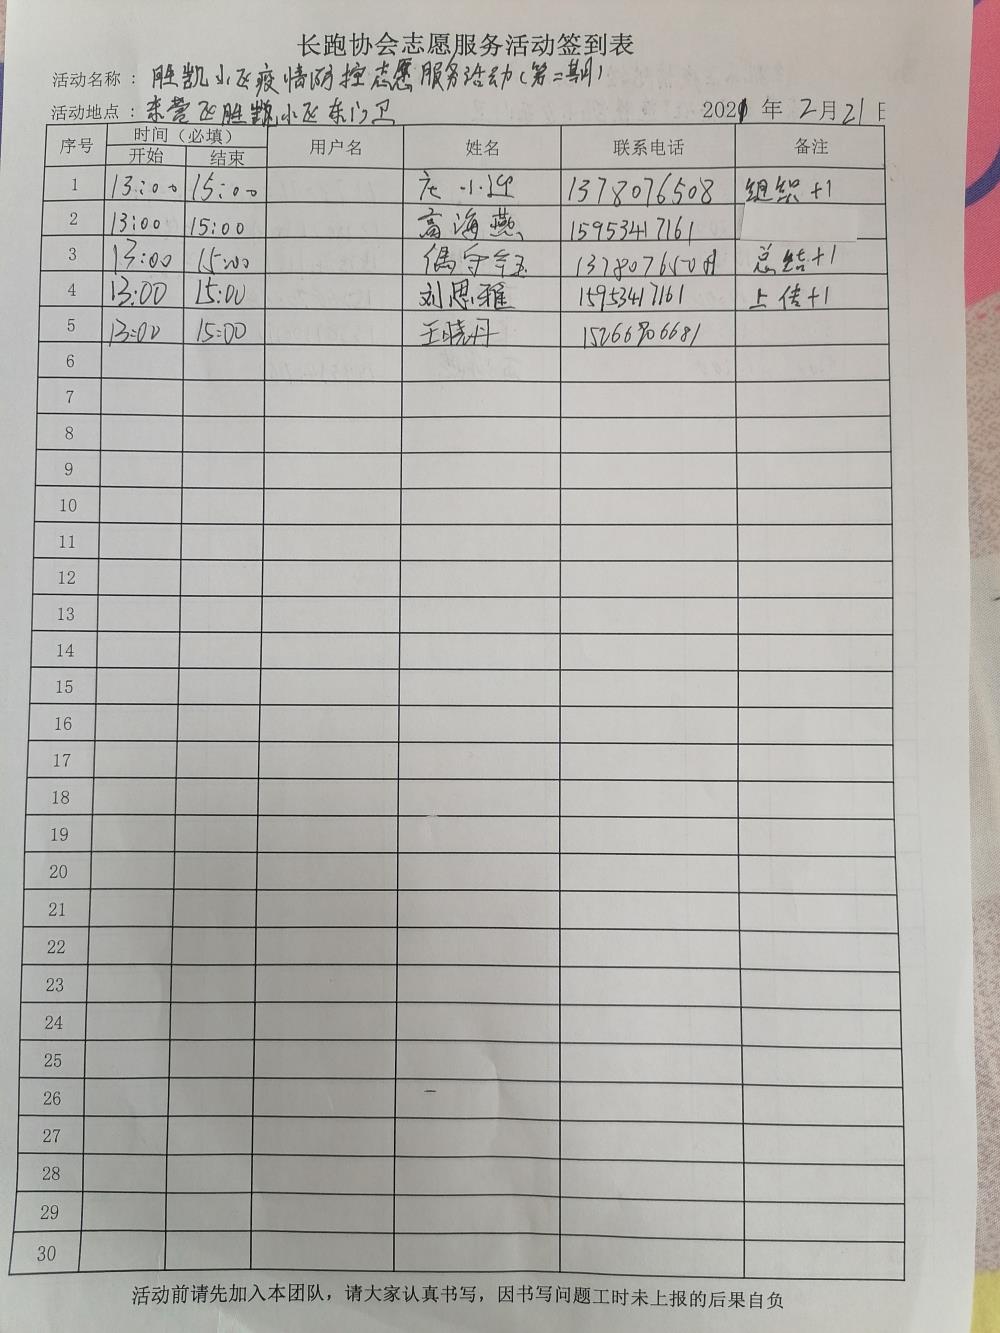 长跑协会志愿服务活动签到表
活动名称：胜凯小区疫情防控志愿服务活动（第二期）
活动地点：东营区胜凯小区东门卫 2021 年 2月21日
序号 时间（必填） 用户名 姓名 联系电话 备注
开始 结束
1 13:00 15:00 小 1378076508 组织+1
2 13:00 15:00 高海燕 15953417161
3 13:00 15:00 总结+1
4 13:00 15:00 刘思雅 15953417161 上传+1
5 13:00 15:00 王晓丹 15266806681
6
7
8
9
10
11
12
13
14
15
16
17
18
19
20
21
22
23
24
25
26
27
28
29
30
活动前请先加入本团队，请大家认真书写，因书写问题工时未上报的后果自负